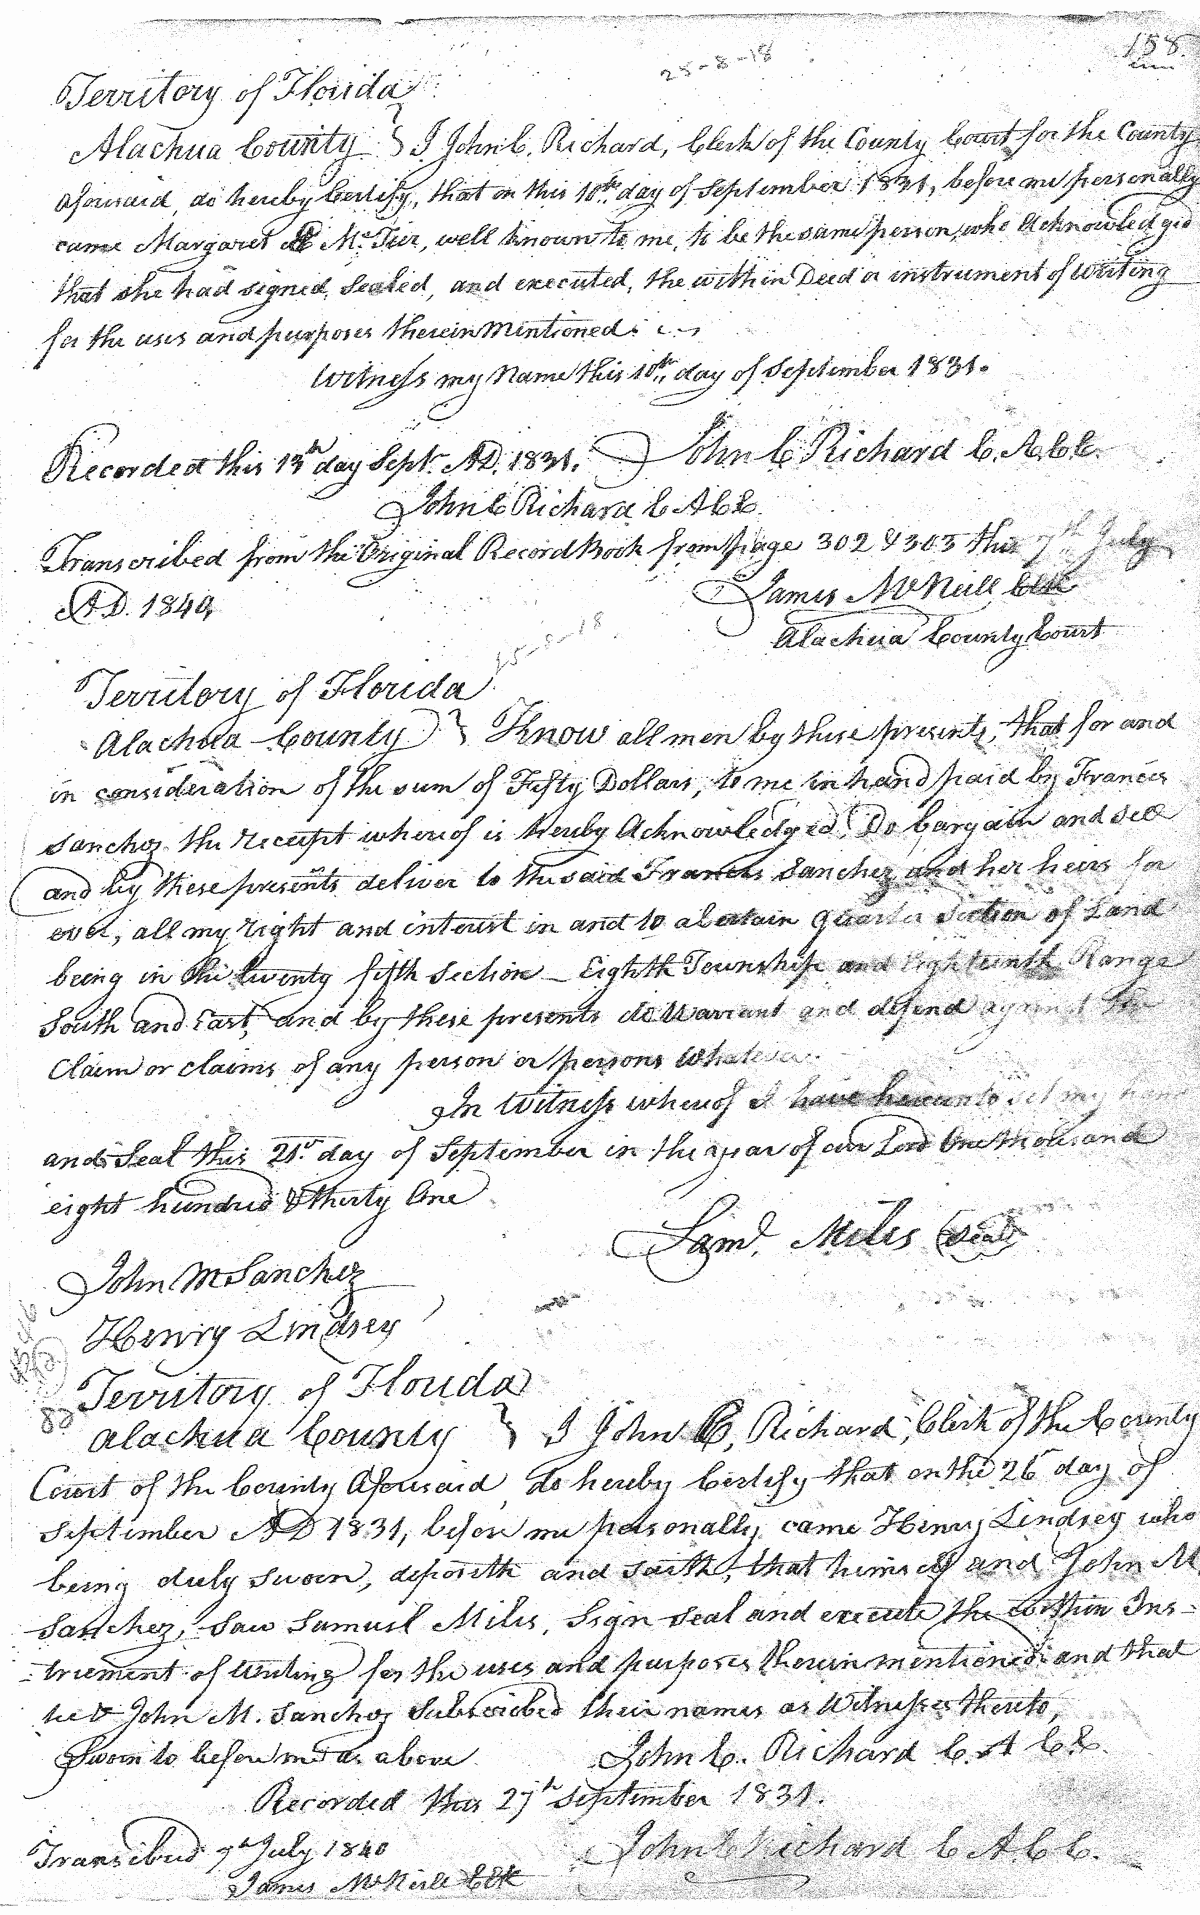 158
25-8-18
Territory of Florida
Alachua County } I John C. Richard, Clerk of the County Court for the County
aforesaid, do hereby Certify, that on this 10th day of September 1831, before me personally
came Margaret Mc Tier, well known to me, to be the same person, who acknowledged
that she had signed, sealed, and executed, the within Deed or instrument of writing
for the uses and purposes therein mentioned
Witness my Name this 10th day of September 1831.
Recorded this 13th day Sept. AD. 1831. John C Richard C. A.C.C.
John C Richard C A C C.
Transcribed from the Original Record Book from page 302 & 303 this 7th July
A.D. 1840, James McNeill Clk
Alachua County Court
25-8-18
Territory of Florida
Alachua County } Know all men by these presents, that for and
in consideration of the sum of Fifty Dollars, to me in hand paid by Francis
Sanchez the receipt whereof is hereby Acknowledged, Do bargain and sell
and by these presents deliver to the said Francis Sanchez and her heirs for
ever, all my right and interest in and to a certain quarter section of Land
being in the twenty fifth section - Eighth Township and Eighteenth Range
South and East, and by these presents do warrant and defend against the
Claim or claims of any person or persons whatever.
In Witness whereof I have hereunto set my hand
and Seal this 21st day of September in the year of our Lord One thousand
eight hundred & thirty One
Saml. Miles (Seal)
John M Sanchez
Henry Lindsey
Territory of Florida
82
Alachua County } I John C, Richard, Clerk of the County
Court of the County Aforesaid, do hereby Certify that on the 26th day of
September AD 1831, before me personally came Henry Lindsey who
being duly sworn, deposeth and saith, that himself and John M
Sanchez, saw Samuel Miles, sign seal and execute the within Ins-
-trument of writing for the uses and purposes therein mentioned and that
he & John M. Sanchez Subscribed their names as Witnesses thereto,
Sworn to before me as above John C. Richard C. A C C.
Recorded this 27th September 1831.
Transcribed 7th July 1840 John C Richard C A C C.
James McNeill Clk